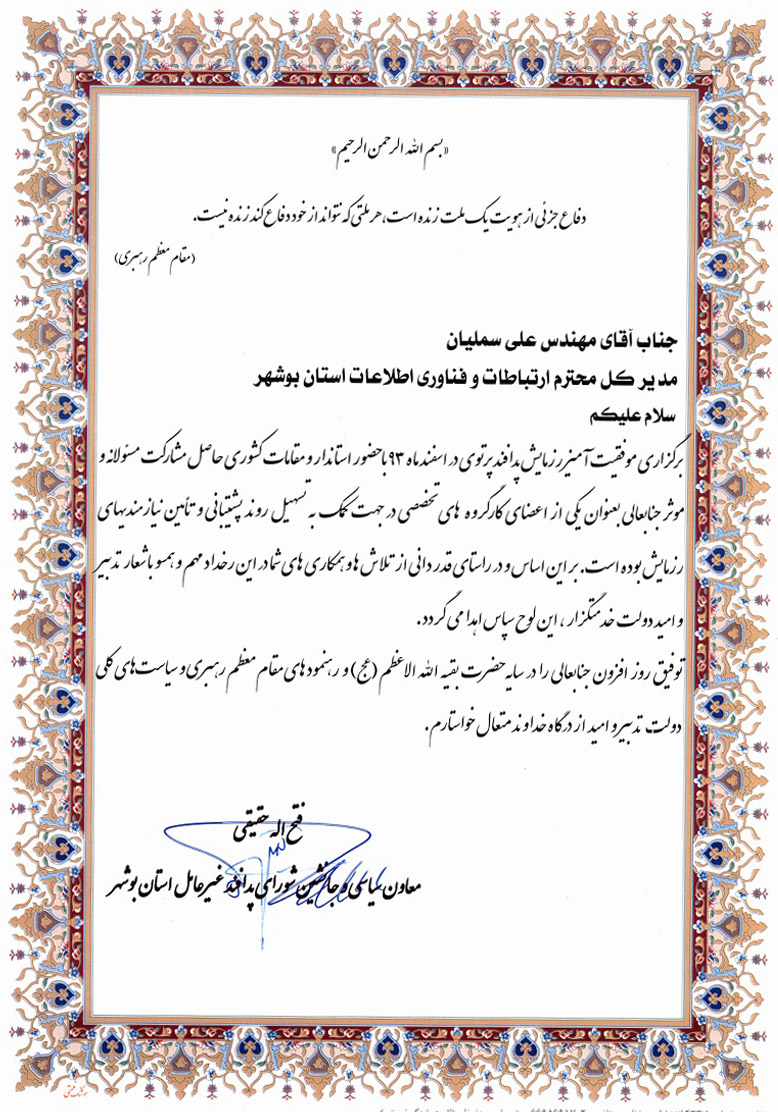 «بسم الله الرحمن الرحیم»
دفاع جزئی از هویت یک ملت زنده است، هر ملتی که نتواند از خود دفاع کند زنده نیست.
(مقام معظم رهبری)
جناب آقای مهندس علی سملیان
مدیر کل محترم ارتباطات و فناوری اطلاعات استان بوشهر
سلام علیکم
برگزاری موفقیت آمیز رزمایش پدافند پرتوی در اسفند ماه ۹۳ با حضور استاندار و مقامات کشوری حاصل مشارکت مسئولانه و
موثر جنابعالی بعنوان یکی از اعضای کارگروه های تخصصی در جهت کمک به تسهیل روند پشتیبانی و تأمین نیازمندیهای
رزمایش بوده است. بر این اساس و در راستای قدردانی از تلاش ها و همکاری های شما در این رخداد مهم و همسو با شعار تدبیر
و امید دولت خدمتگزار ، این لوح سپاس اهدا می گردد.
توفیق روز افزون جنابعالی را در سایه حضرت بقیه الله الاعظم (عج) و رهنمودهای مقام معظم رهبری و سیاست های کلی
دولت تدبیر و امید از درگاه خداوند متعال خواستارم.
فتح اله حقیقی
معاون سیاسی و جانشین شورای پدافند غیرعامل استان بوشهر